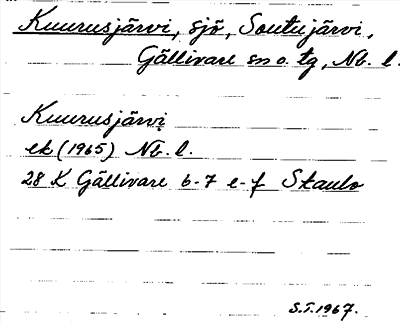 Kuurusjärvi, sjö, Soutujärvi,
Gällivare sn o. tg, Nb. l.
Kuurusjärvi
ek (1965) Nb. l.
28 K Gällivare 6-7 e-f Skaulo
S.I. 1967.